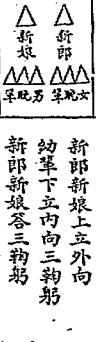 新郎
新娘
女晚輩
男晚輩
新郎新娘上立外向
幼輩下立內向三鞠躬
新郎新娘答三鞠躬